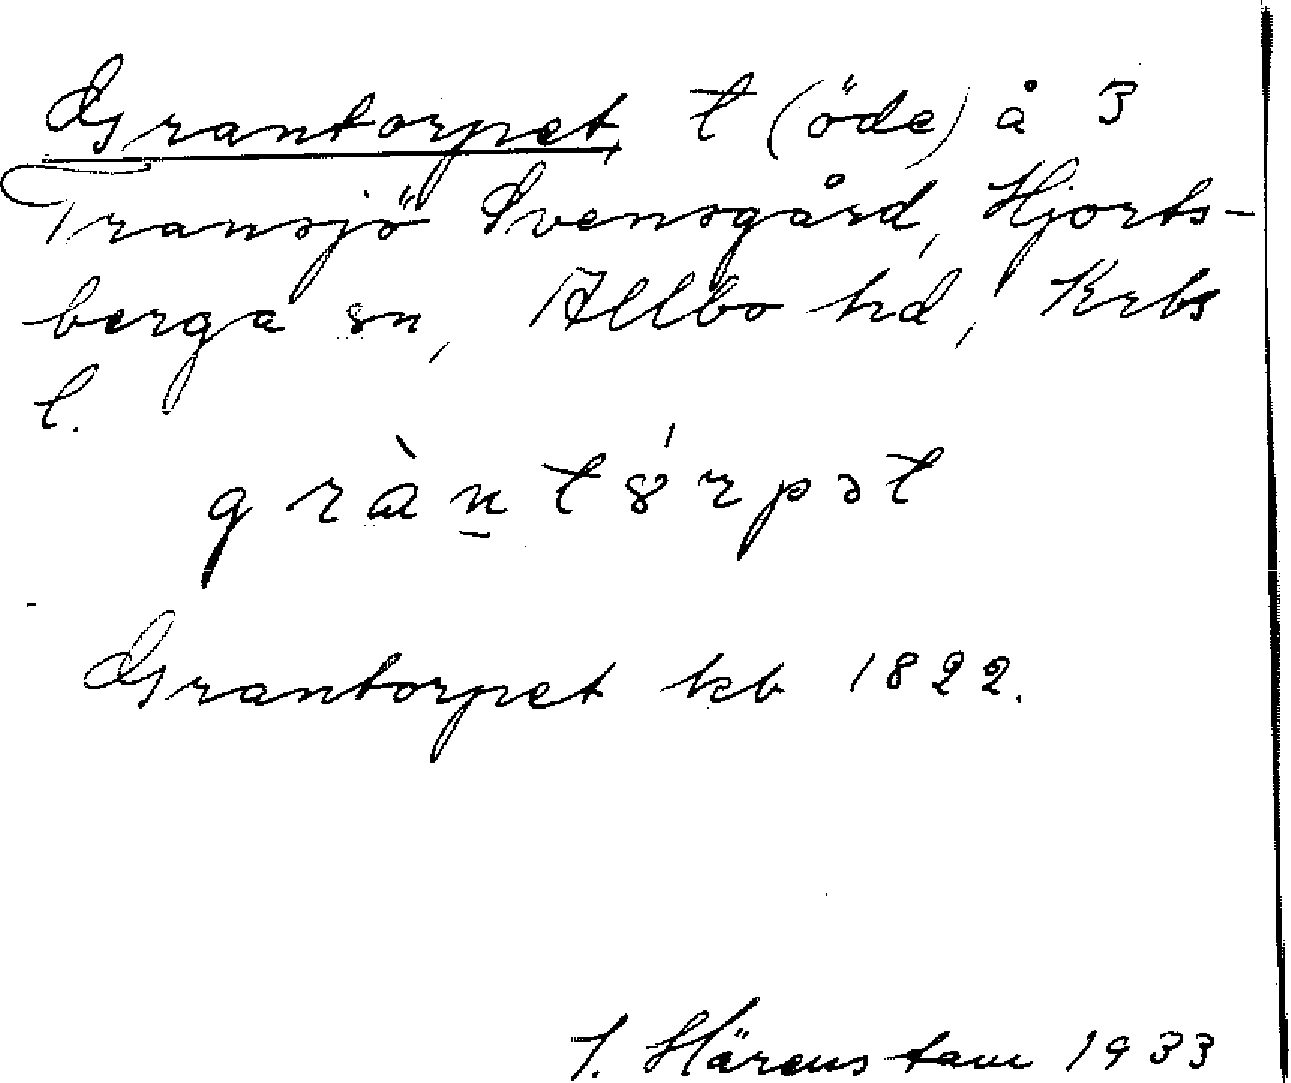 Grantorpet, t (öde) å 3
Transjö Svensgård, Hjorts-
berga sn, Allbo hd, Krbs
l.
gràntórpət
Grantorpet kb 1822.
Härenstam 1933